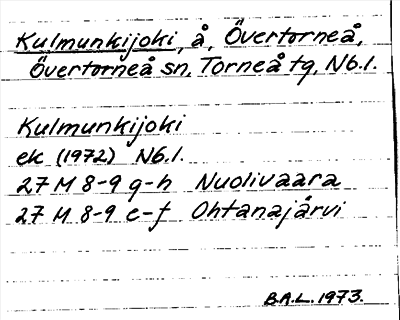 Kulmunkijoki, å, Övertorneå,
Övertorneå sn, Torneå tg, Nb.l.
Kulmunkijoki
ek (1972) Nb.l.
27 M 8-9 g-h Nuolivaara
27 M 8-9 e-f Ohtanajärvi
B.A.L. 1973.